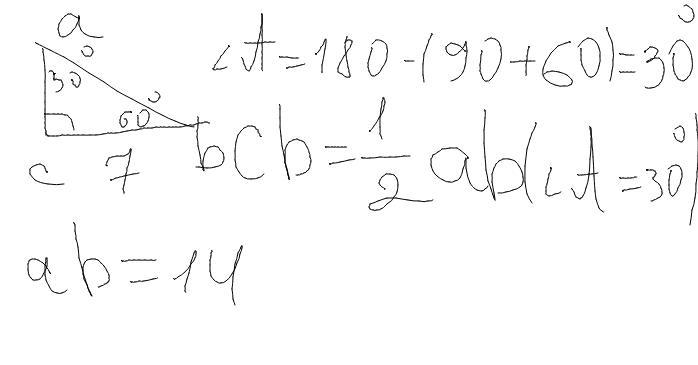 a
30°
60°
c 7 b
∠A = 180 - (90 + 60) = 30°
cb = 1/2 ab (∠A = 30°)
ab = 14